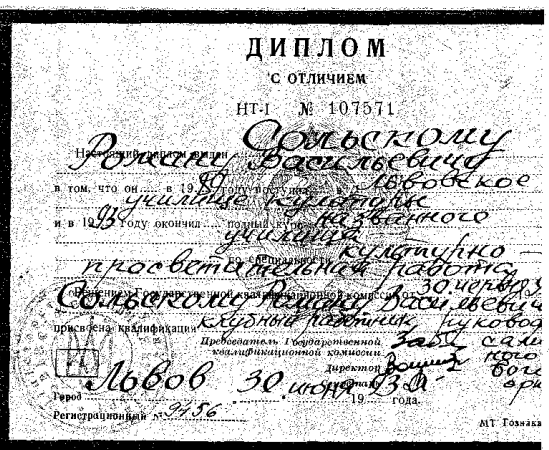 ДИПЛОМ
С ОТЛИЧИЕМ
НТ-I № 107571
Сольскому
Настоящий диплом выдан
Роману Васильевичу
в том, что он в 19 году поступил в Львовское
училище культуры
и в 1993 году окончил полный курс названного
училища
по специальности культурно-
просветительная работа
Решением Государственной квалификационной комиссии от 30 июня 19
Сольскому Роману Васильевичу
присвоена квалификация клубный работник, руковод
Председатель Государственной
квалификационной комиссии
Директор
Секретарь
Львов 30 июня 1993 года.
Город
Регистрационный № 9456
МТ Гознака